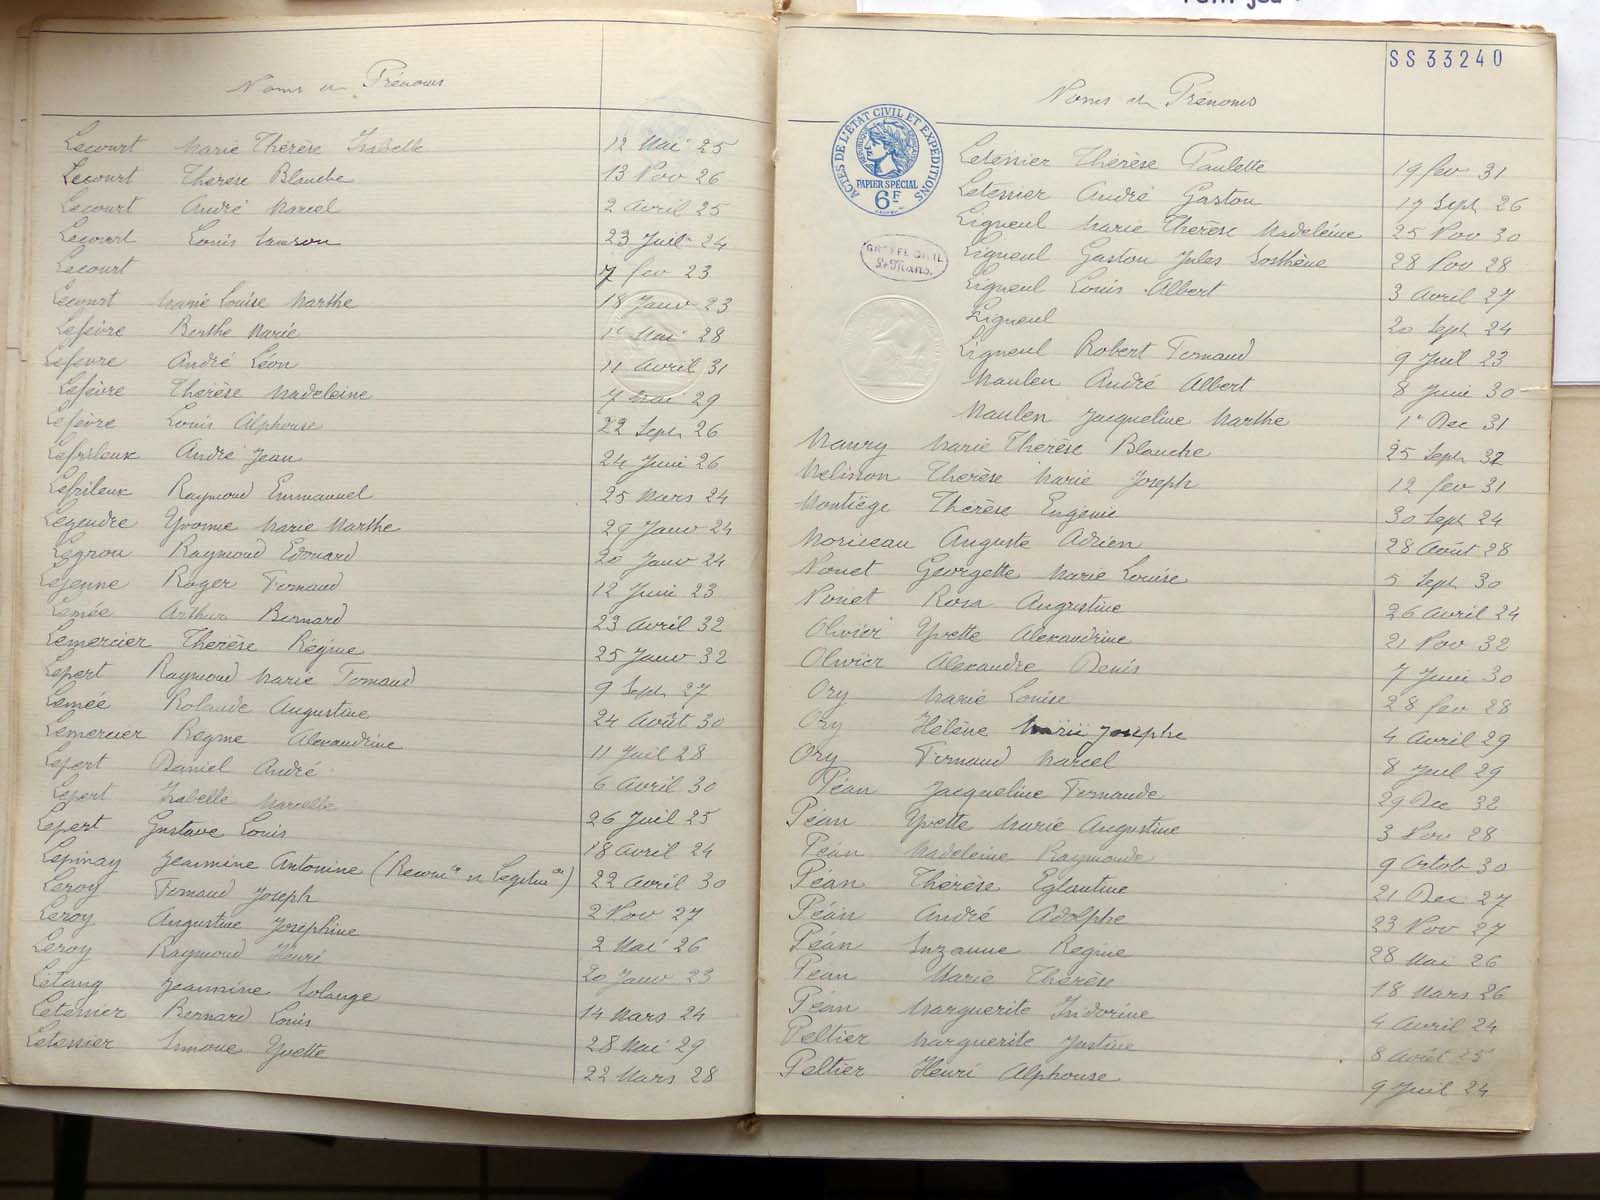 Noms et Prénoms
Lecourt Marie Thérèse Isabelle 12 Mai 25
Lecourt Thérèse Blanche 13 Nov 26
Lecourt André Marcel 2 Avril 25
Lecourt Louis 23 Juil 24
Lecourt 7 fev 23
Marie Louise Marthe 18 Janv 23
Lefèvre Berthe Marie 1er Mai 28
Lefevre André Léon 11 Avril 31
Lefèvre Thérèse Madeleine 7 Mai 29
Lefèvre Louis Alphonse 22 Sept 26
Lefrileux André Jean 24 Juin 26
Lefrileux Raymond Emmanuel 25 Mars 24
Legendre Yvonne Marie Marthe 29 Janv 24
Legrou Raymond Edouard 20 Janv 24
Lejeune Roger Fernand 12 Juin 23
Lemée Arthur Bernard 23 Avril 32
Lemercier Thérèse Régine 25 Janv 32
Lepert Raymond Marie Fernand 9 Sept 27
Lemée Rolande Augustine 24 Août 30
Lemercier Regine Alexandrine 11 Juil 28
Lepert Daniel André 6 Avril 30
Lepert Isabelle Marcelle 26 Juil 25
Lepert Gustave Louis 18 Avril 24
Lepinay Jeannine Antonine (Reconce et Legitimon) 22 Avril 30
Leroy Fernand Joseph 2 Nov 27
Leroy Augustine Joséphine 2 Mai 26
Leroy Raymond Henri 20 Janv 23
Letang Jeannine Solange 14 Mars 24
Letessier Bernard Louis 28 Mai 29
Letessier Simone Yvette 22 Mars 28
SS 33240
Noms et Prénoms
ACTES DE L'ÉTAT CIVIL ET EXPÉDITIONS
PAPIER SPÉCIAL
6F
GREFFE CIVIL
Le Mans
Letessier Thérèse Paulette 19 fev 31
Letessier André Gaston 17 Sept 26
Ligneul Marie Thérèse Madeleine 25 Nov 30
Ligneul Gaston Jules Sosthène 28 Nov 28
Ligneul Louis Albert 3 Avril 27
Ligneul 20 Sept 24
Ligneul Robert Fernand 9 Juil 23
Maulen André Albert 8 Juin 30
Maulen Jacqueline Marthe 1er Dec 31
Maury Marie Thérèse Blanche 25 Sept 32
Melisson Thérèse Marie Joseph 12 fev 31
Montiège Thérèse Eugenie 30 Sept 24
Moriceau Auguste Adrien 28 Août 28
Nouet Georgette Marie Louise 5 Sept 30
Nouet Rosa Augustine 26 Avril 24
Olivier Yvette Alexandrine 21 Nov 32
Olivier Alexandre Denis 7 Juin 30
Ory Marie Louise 28 fev 28
Ory Hélène Marie Josèphe 4 Avril 29
Ory Fernand Marcel 8 Juil 29
Péan Jacqueline Fernande 29 Dec 32
Péan Yvette Marie Augustine 3 Nov 28
Péan Madeleine Raymonde 9 Octob 30
Péan Thérèse Eglantine 21 Dec 27
Péan André Adolphe 23 Nov 27
Péan Suzanne Regine 28 Mai 26
Péan Marie Thérèse 18 Mars 26
Péan Marguerite Isidorine 4 Avril 24
Peltier Marguerite Justine 8 Août 25
Peltier Henri Alphonse 9 Juil 24